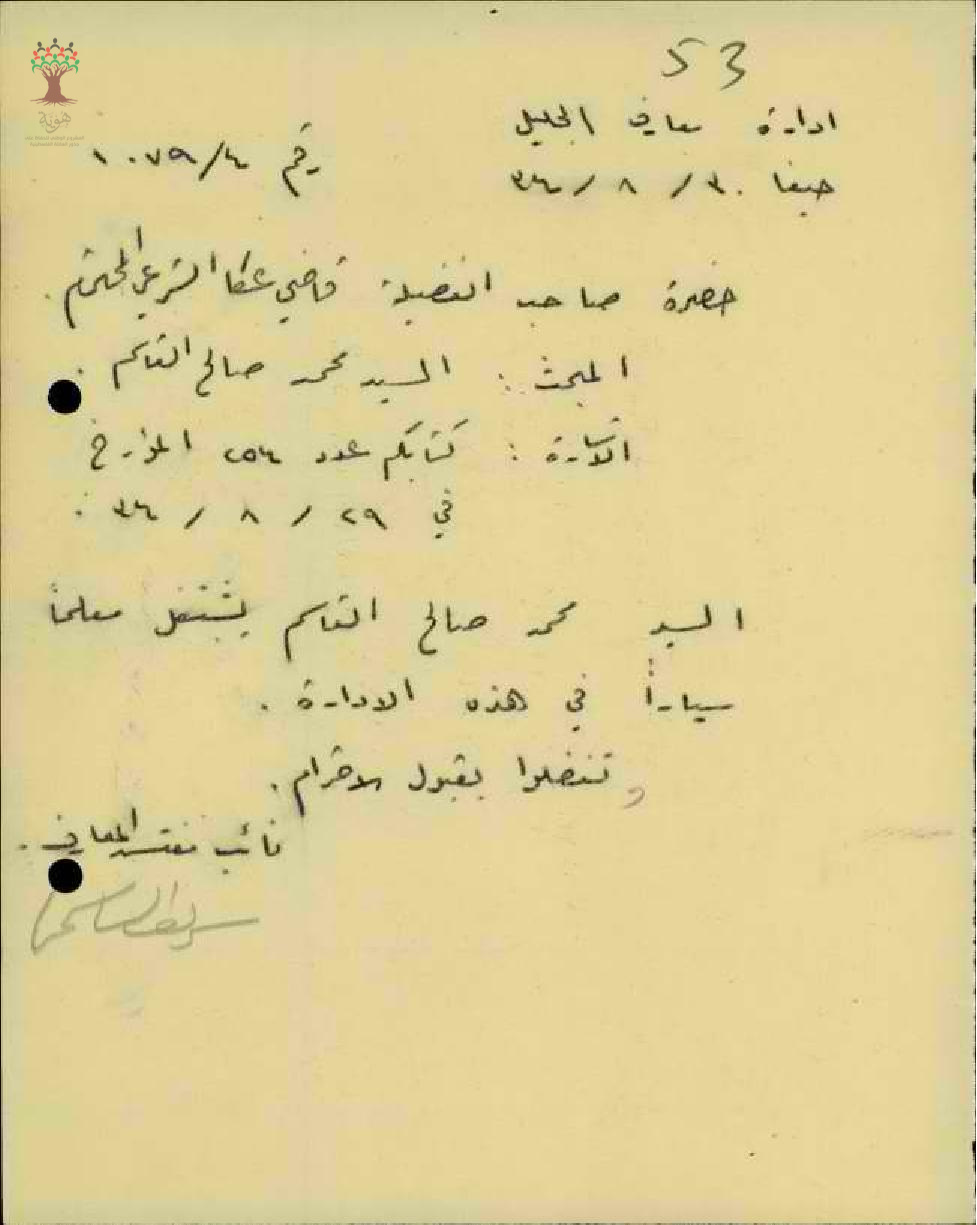 53
ادارة معارف الجليل
رقم ١٠٧٩/٤
حيفا ٣٠ / ٨ / ٣٤
حضرة صاحب الفضيلة قاضي عكا الشرعي المحترم.
المبحث : السيد محمد صالح القاسم .
الاشارة : كتابكم عدد ٢٥٤ المؤرخ
في ٢٩ / ٨ / ٣٤ .
السيد محمد صالح القاسم يشتغل معلماً
سياراً في هذه الادارة .
وتفضلوا بقبول الاحترام .
نائب مفتش المعارف .
هوية